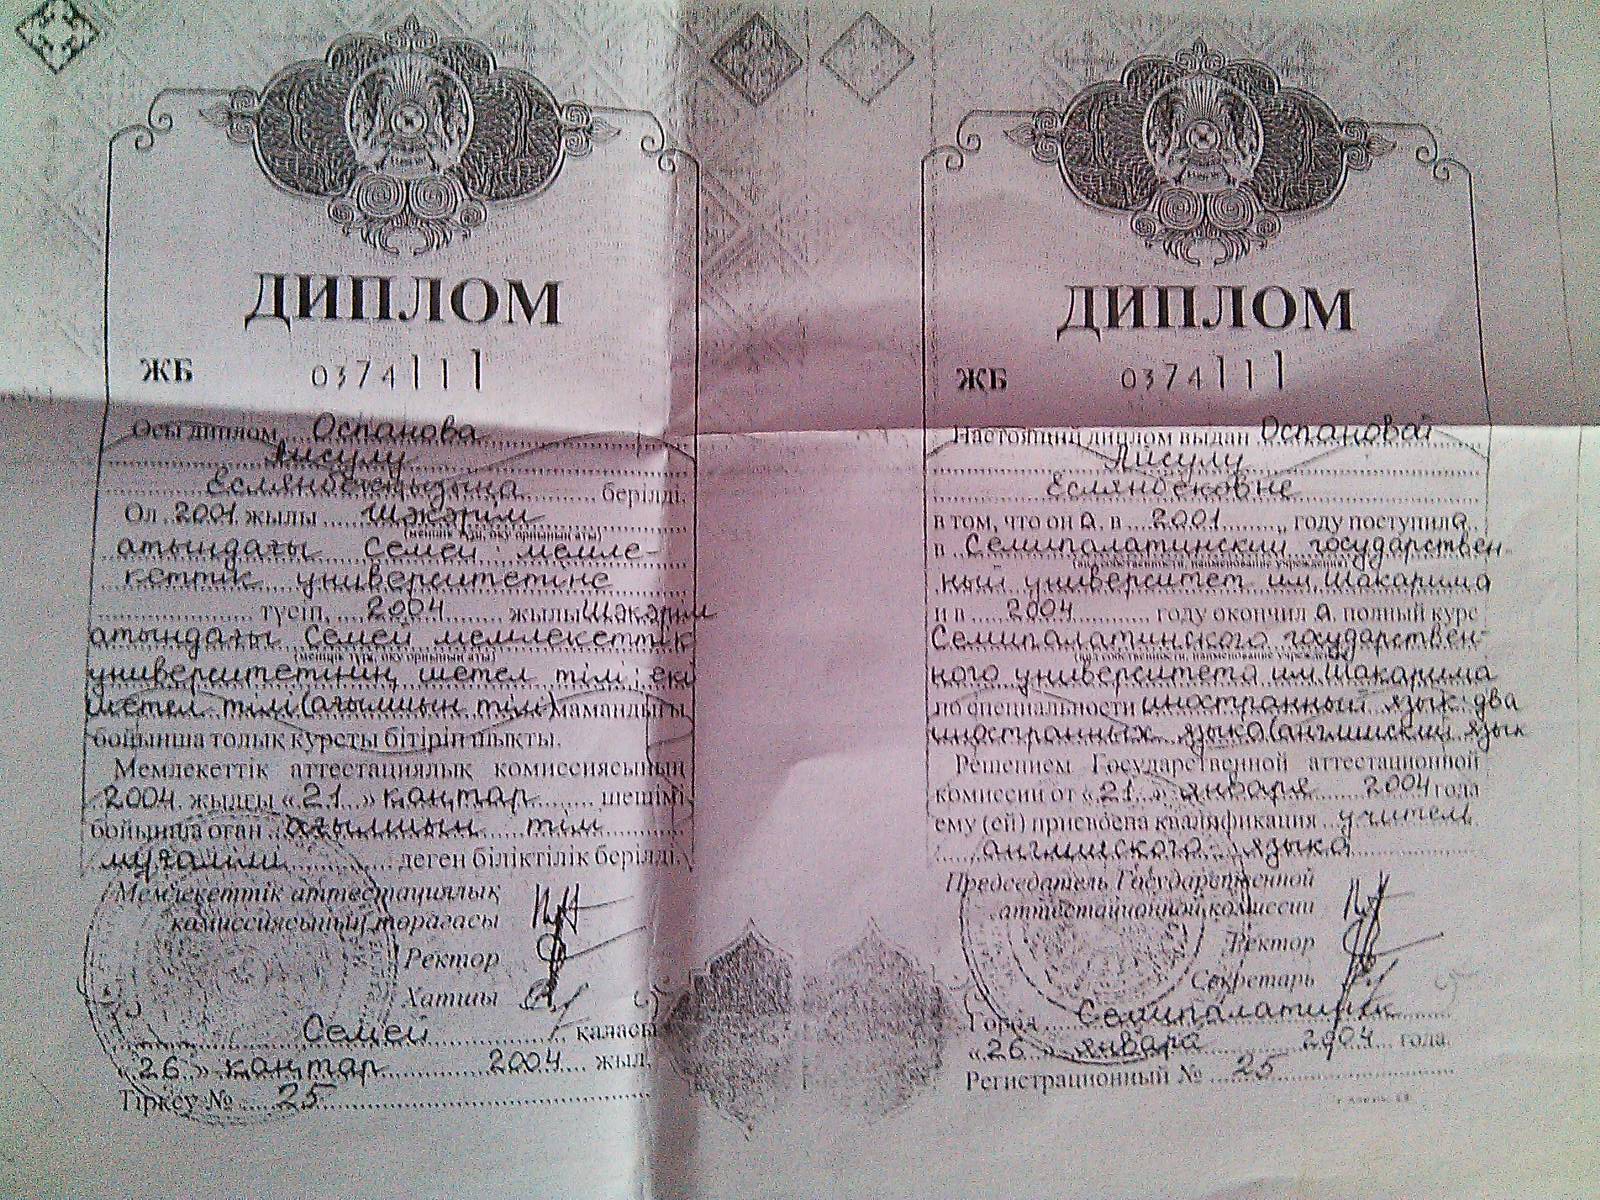 ДИПЛОМ
ЖБ 0374111
Осы диплом Оспанова
Айсулу
Еслянбекқызына берілді.
Ол 2001 жылы Шәкәрім
(меншік түрі, оқу орнының аты)
атындағы Семей мемле-
кеттік университетіне
түсіп, 2004 жылы Шәкәрім
атындағы Семей мемлекеттік
(меншік түрі, оқу орнының аты)
университетінің шетел тілі: екі
шетел тілі (ағылшын тілі) мамандығы
бойынша толық курсты бітіріп шықты.
Мемлекеттік аттестациялық комиссиясының
2004 жылғы «21» қаңтар шешімі
бойынша оған ағылшын тілі
мұғалімі деген біліктілік берілді.
Мемлекеттік аттестациялық
комиссиясының төрағасы
Ректор
Хатшы
Семей қаласы
«26» қаңтар 2004 жыл.
Тіркеу № 25
ДИПЛОМ
ЖБ 0374111
Настоящий диплом выдан Оспановай
Айсулу
Еслянбековне
в том, что он а в 2001 году поступила
в Семипалатинский государствен-
(вид собственности, наименование учреждения)
ный университет им. Шакарима
и в 2004 году окончил а полный курс
Семипалатинского государствен-
(вид собственности, наименование учреждения)
ного университета им. Шакарима
по специальности иностранный язык: два
иностранных языка (английский язык
Решением Государственной аттестационной
комиссии от «21» января 2004 года
ему (ей) присвоена квалификация учитель
английского языка
Председатель Государственной
аттестационной комиссии
Ректор
Секретарь
Город Семипалатинск
«26» января 2004 года.
Регистрационный № 25